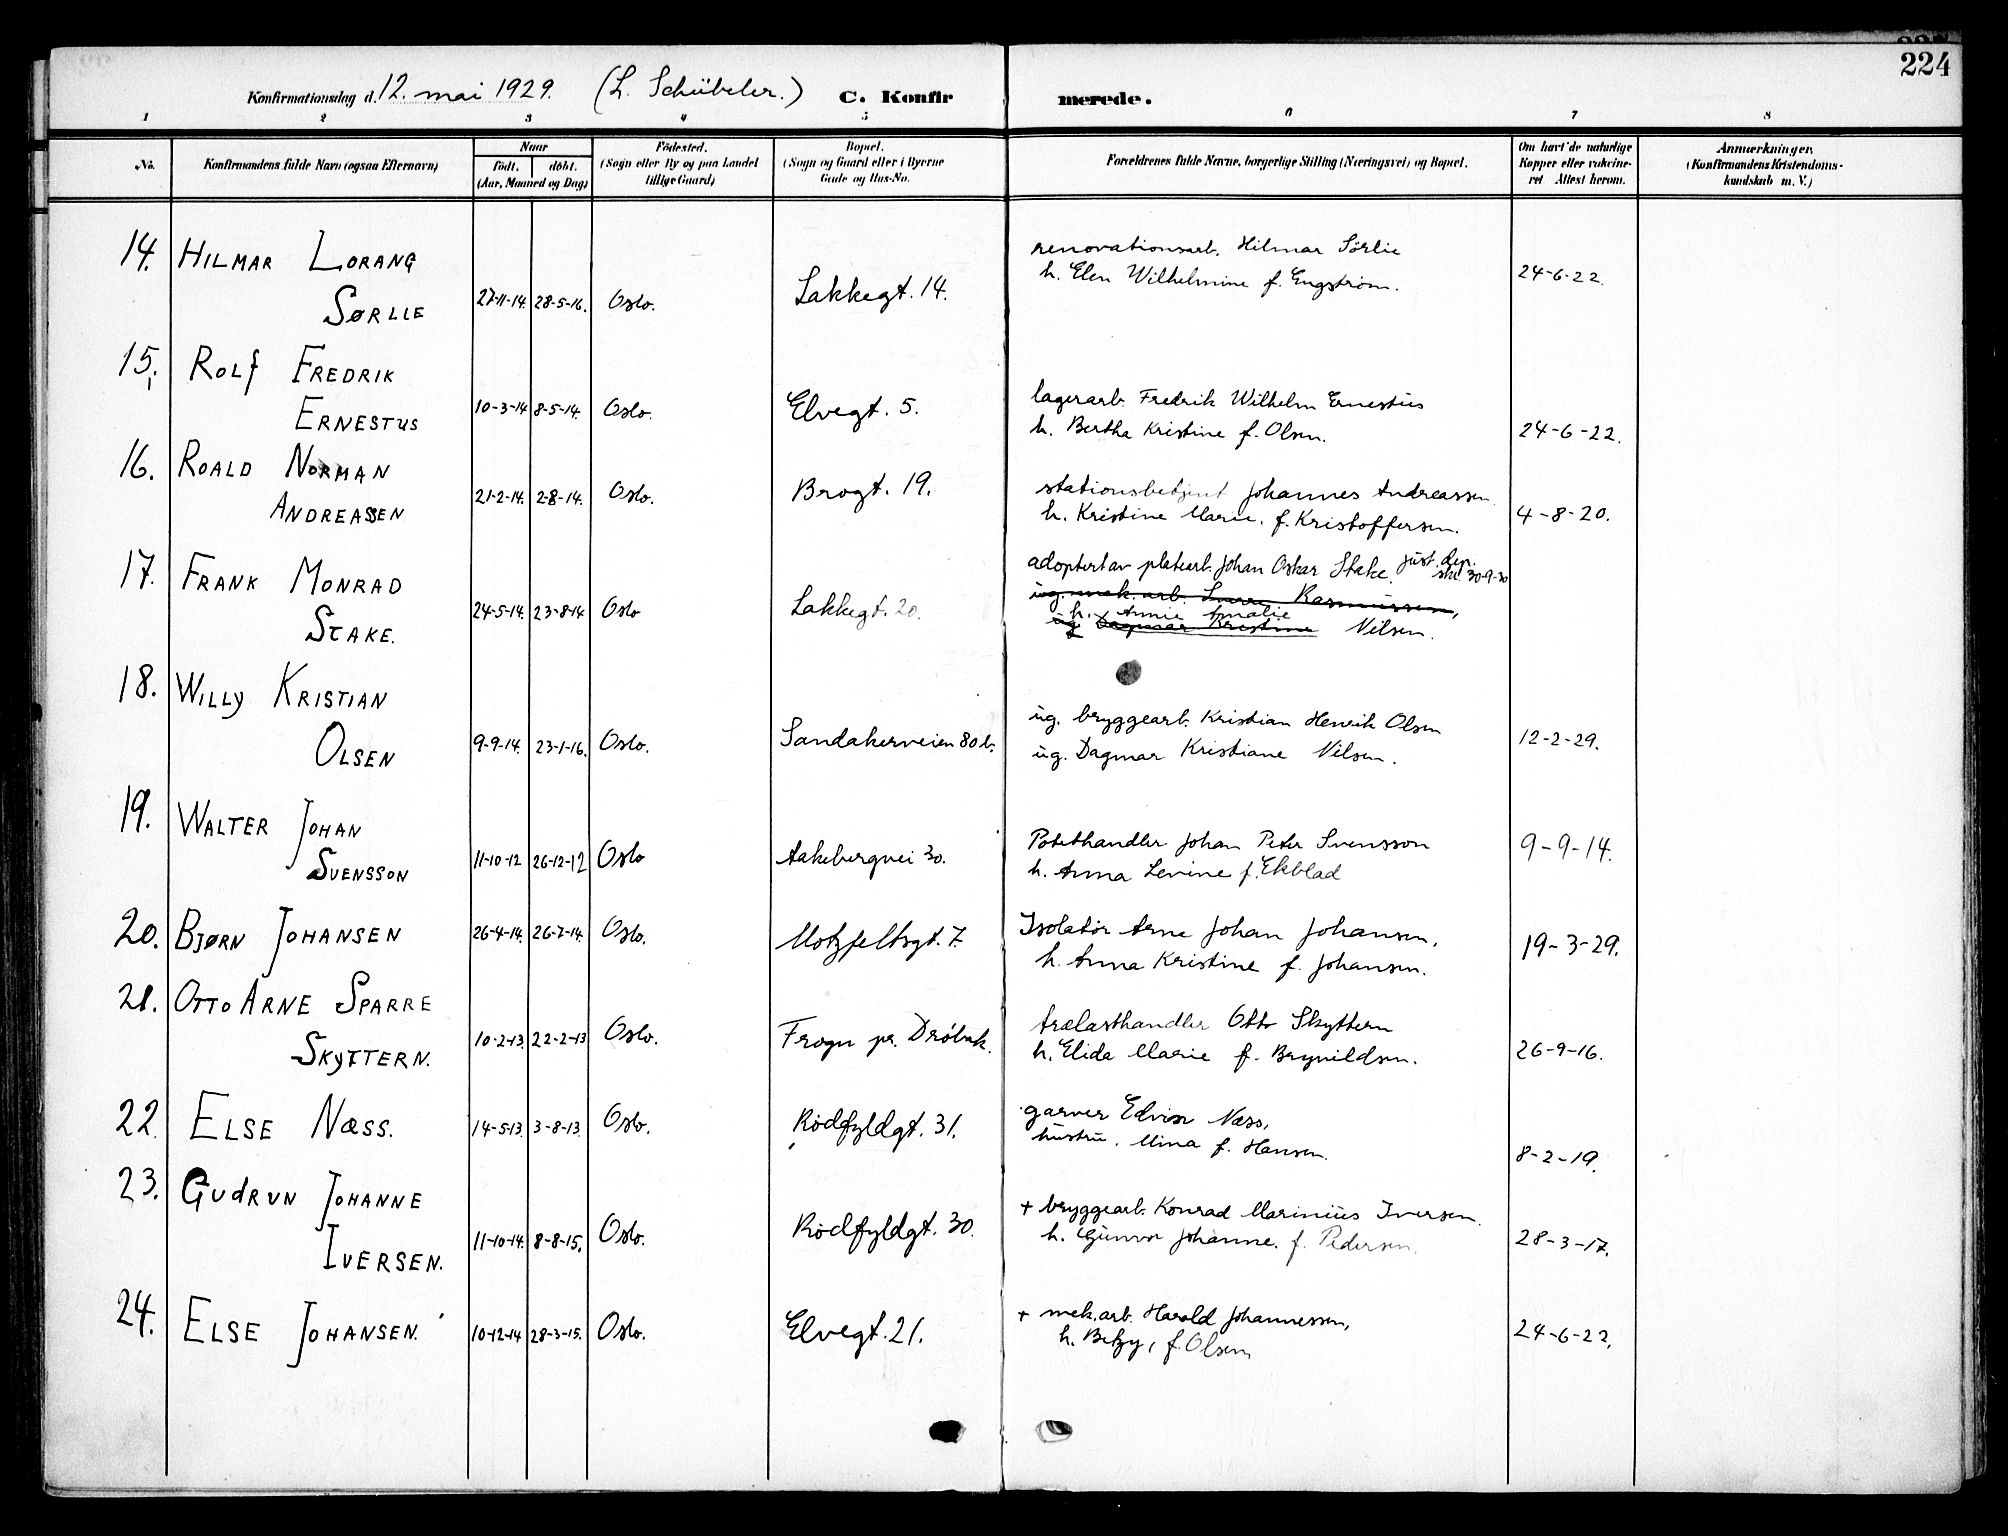 224
Konfirmationsdag d. 12. mai 1929. (L. Schübeler.) C. Konfirmerede.
1 2 3 4 5 6 7 8
No. Konfirmandens fulde Navn (ogsaa Efternavn) Naar født. døbt. (Aar, Maaned og Dag) Fødested. (Sogn eller By og paa Landet tillige Gaard) Bopæl. (Sogn og Gaard eller i Byerne Gade og Hus-No. Forældrenes fulde Navne, borgerlige Stilling (Næringsvei) og Bopæl. Om havt de naturlige Kopper eller vakcineret Attest herom. Anmærkninger, (Konfirmandens Kristendomskundskab m. V.)
14. HILMAR LORANG renovationsarb. Hilmar Sørlie
SØRLIE 27-11-14. 28-5-16. Oslo. Lakkegt. 14. h. Elen Wilhelmine f. Engstrøm. 24-6-22.
15. ROLF FREDRIK lagerarb. Fredrik Wilhelm Ernestus
ERNESTUS 10-3-14 8-5-14. Oslo. Elvegt. 5. h. Bertha Kristine f. Olsen. 24-6-22.
16. ROALD NORMAN stationsbetjent Johannes Andreassen
ANDREASSEN 21-2-14. 2-8-14. Oslo. Brogt. 19. h. Kristine Marie, f. Kristoffersen. 4-8-20.
17. FRANK MONRAD adoptert av platearb. Johan Oskar Stake. just. dep. skr. 30-9-30
ug. mek. arb. Rasmussen,
h. Annie Amalie
STAKE. 24-5-14. 23-8-14 Oslo Lakkegt. 20. ug Dagmar Kristine Nilsen.
18. WILLY KRISTIAN ug. bryggearb. Kristian Henrik Olsen
OLSEN 9-9-14. 23-1-16. Oslo. Sandakerveien 80 b. ug. Dagmar Kristiane Nilsen. 12-2-29.
19. WALTER JOHAN Potethandler Johan Peter Svensson
SVENSSON 11-10-12 26-12-12 Oslo Aakebergvei 30. h. Anna Levine f. Ekblad 9-9-14.
20. BJØRN JOHANSEN 26-4-14. 26-7-14. Oslo. Motzfeltsgt. 7. Isolatör Arne Johan Johansen,
h. Anna Kristine f. Johansen. 19-3-29.
21. OTTO ARNE SPARRE trælasthandler Otto Skyttern
SKYTTERN. 10-2-13. 22-2-13 Oslo. Frogn pr. Drøbak. h. Elida Marie f. Brynildsen. 26-9-16.
22. ELSE NÆSS. 14-5-13. 3-8-13. Oslo. Rödfyldgt. 31. garver Edvin Næss,
hustru. Mina f. Hansen. 8-2-19.
23. GUDRUN JOHANNE + bryggearb. Konrad Marinius Iversen.
IVERSEN. 11-10-14. 8-8-15. Oslo. Rödfyldgt. 30. h. Gunvor Johanne. f. Pedersen. 28-3-17.
24. ELSE JOHANSEN. 10-12-14 28-3-15. Oslo. Elvegt. 21. + mek. arb. Harald Johannessen,
h. Betzy, f. Olsen 24-6-22.